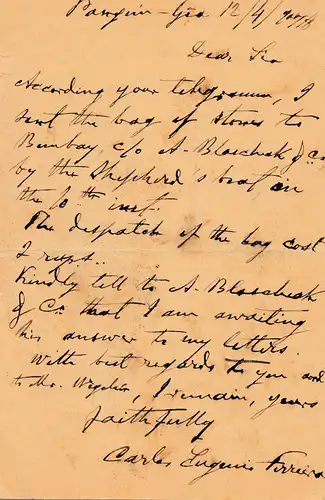 Pangim - Goa 12/4/
Dear Sir
According your telegramm, I
sent the bag of stones to
Bombay, c/o A. Blascheck & Co
by the Shepherd's boat on
the 10th inst.
The dispatch of the bag cost
2 rups..
Kindly tell to A. Blascheck
& Co that I am awaiting
his answer to my letters.
With best regards to you and
to Mr. I remain, yours
faithfully
Carlos Eugenio Ferreira